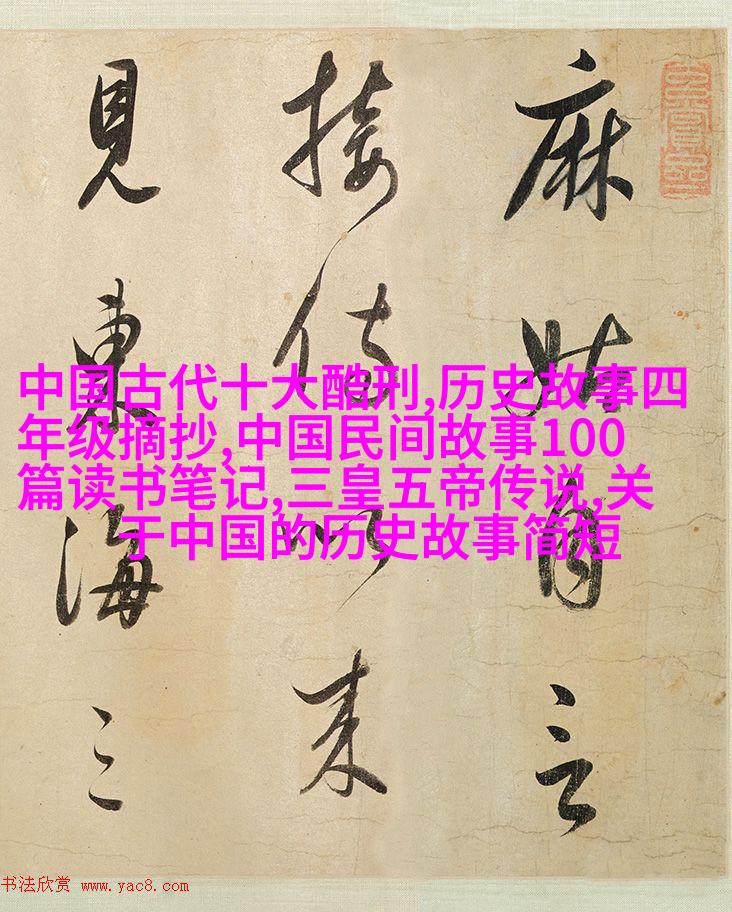 麻姑自言
接侍以来
見東海三
中国古代十大酷刑,历史故事四
年级摘抄,中国民间故事100
篇读书笔记,三皇五帝传说,关
于中国的历史故事简短
书法欣赏 www.yac8.com